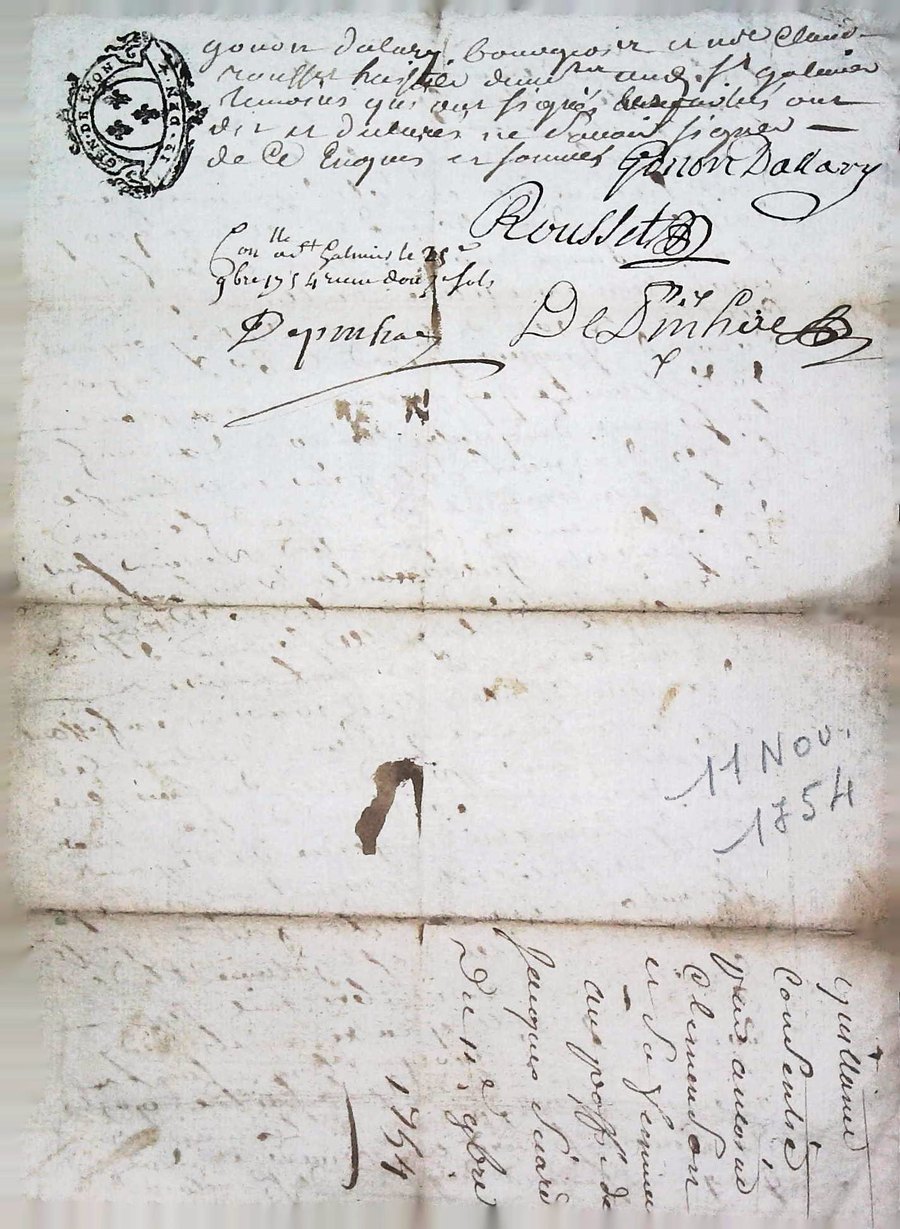 GEN. DE LYON
gonon dalary bourgeois et me Claude
rousset huissier demt aud. St galmier
temoins qui ont signés les parties ont
dit et declarés ne scavoir signer —
de Ce Enquis et sommés Gonon Dallary
Rousset
Con lle a St Galmier le 25e
9bre 1754 reçu douze sols
Depinhac
De Pinhac
11 Nov.
1754
quittance
Consentie
par antoine
Clemenson
et sa femme
au profit de
Jacques Siard
Du 11e 9bre
1754